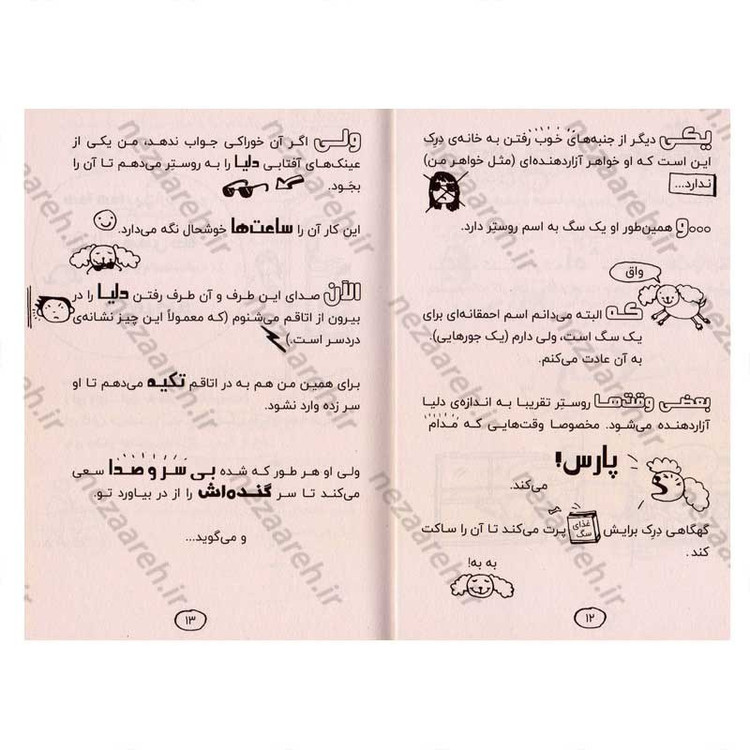 یکی دیگر از جنبه‌های خوب رفتن به خانه‌ی دِرِک
این است که او خواهر آزاردهنده‌ای (مثل خواهر من)
ندارد...
...و همین‌طور او یک سگ به اسم روستر دارد.
واق
که البته می‌دانم اسم احمقانه‌ای برای
یک سگ است، ولی دارم (یک جورهایی).
به آن عادت می‌کنم.
بعضی وقت‌ها روستِر تقریبا به اندازه‌ی دلیا
آزاردهنده می‌شود. مخصوصا وقت‌هایی که مدام
پارس!
می‌کند.
گهگاهی دِرِک برایش غذای سگ پرت می‌کند تا آن را ساکت
کند.
به به!
۱۲
ولی اگر آن خوراکی جواب ندهد، من یکی از
عینک‌های آفتابی دلیا را به روستِر می‌دهم تا آن را
بجَود.
این کار آن را ساعت‌ها خوشحال نگه می‌دارد.
الآن صدای این طرف و آن طرف رفتن دلیا را در
بیرون از اتاقم می‌شنوم (که معمولاً این چیز نشانه‌ی
دردسر است.)
برای همین من هم به در اتاقم تکیه می‌دهم تا او
سر زده وارد نشود.
ولی او هر طور که شده بی سر و صدا سعی
می‌کند تا سر گنده‌اش را از در بیاورد تو.
و می‌گوید...
۱۳
nezaareh.ir